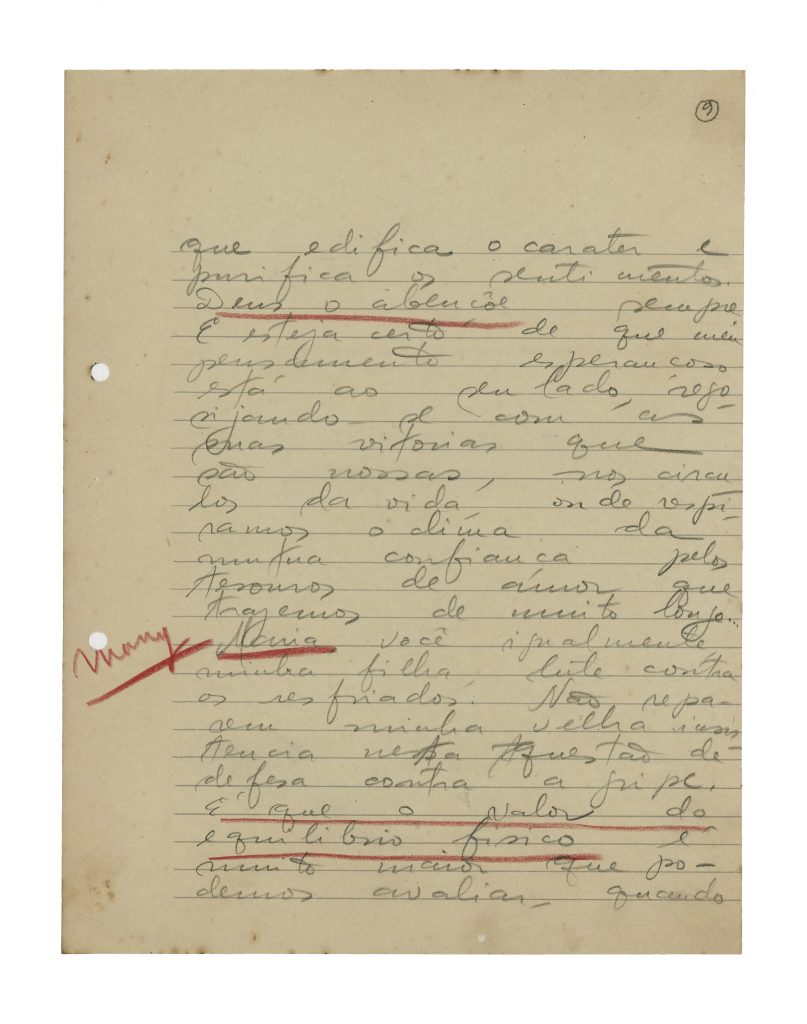 9
que edifica o carater e
purifica os sentimentos.
Deus o abençôe sempre
E esteja certo de que meu
pensamento esperançoso
está ao seu lado, rego-
sijando-se com as
suas vitorias que
são nossas, nos circu
los da vida, onde respi-
ramos o clima da
mutua confiança pelos
tesouros de amor que
trazemos de muito longe...
Many Maria você igualmente
minha filha, lute contra
os resfriados. Não repa-
rem minha velha insis
tencia nesta questão de
defesa contra a gripe.
E' que o valor do
equilibrio fisico é
muito maior que po-
demos avaliar, quando